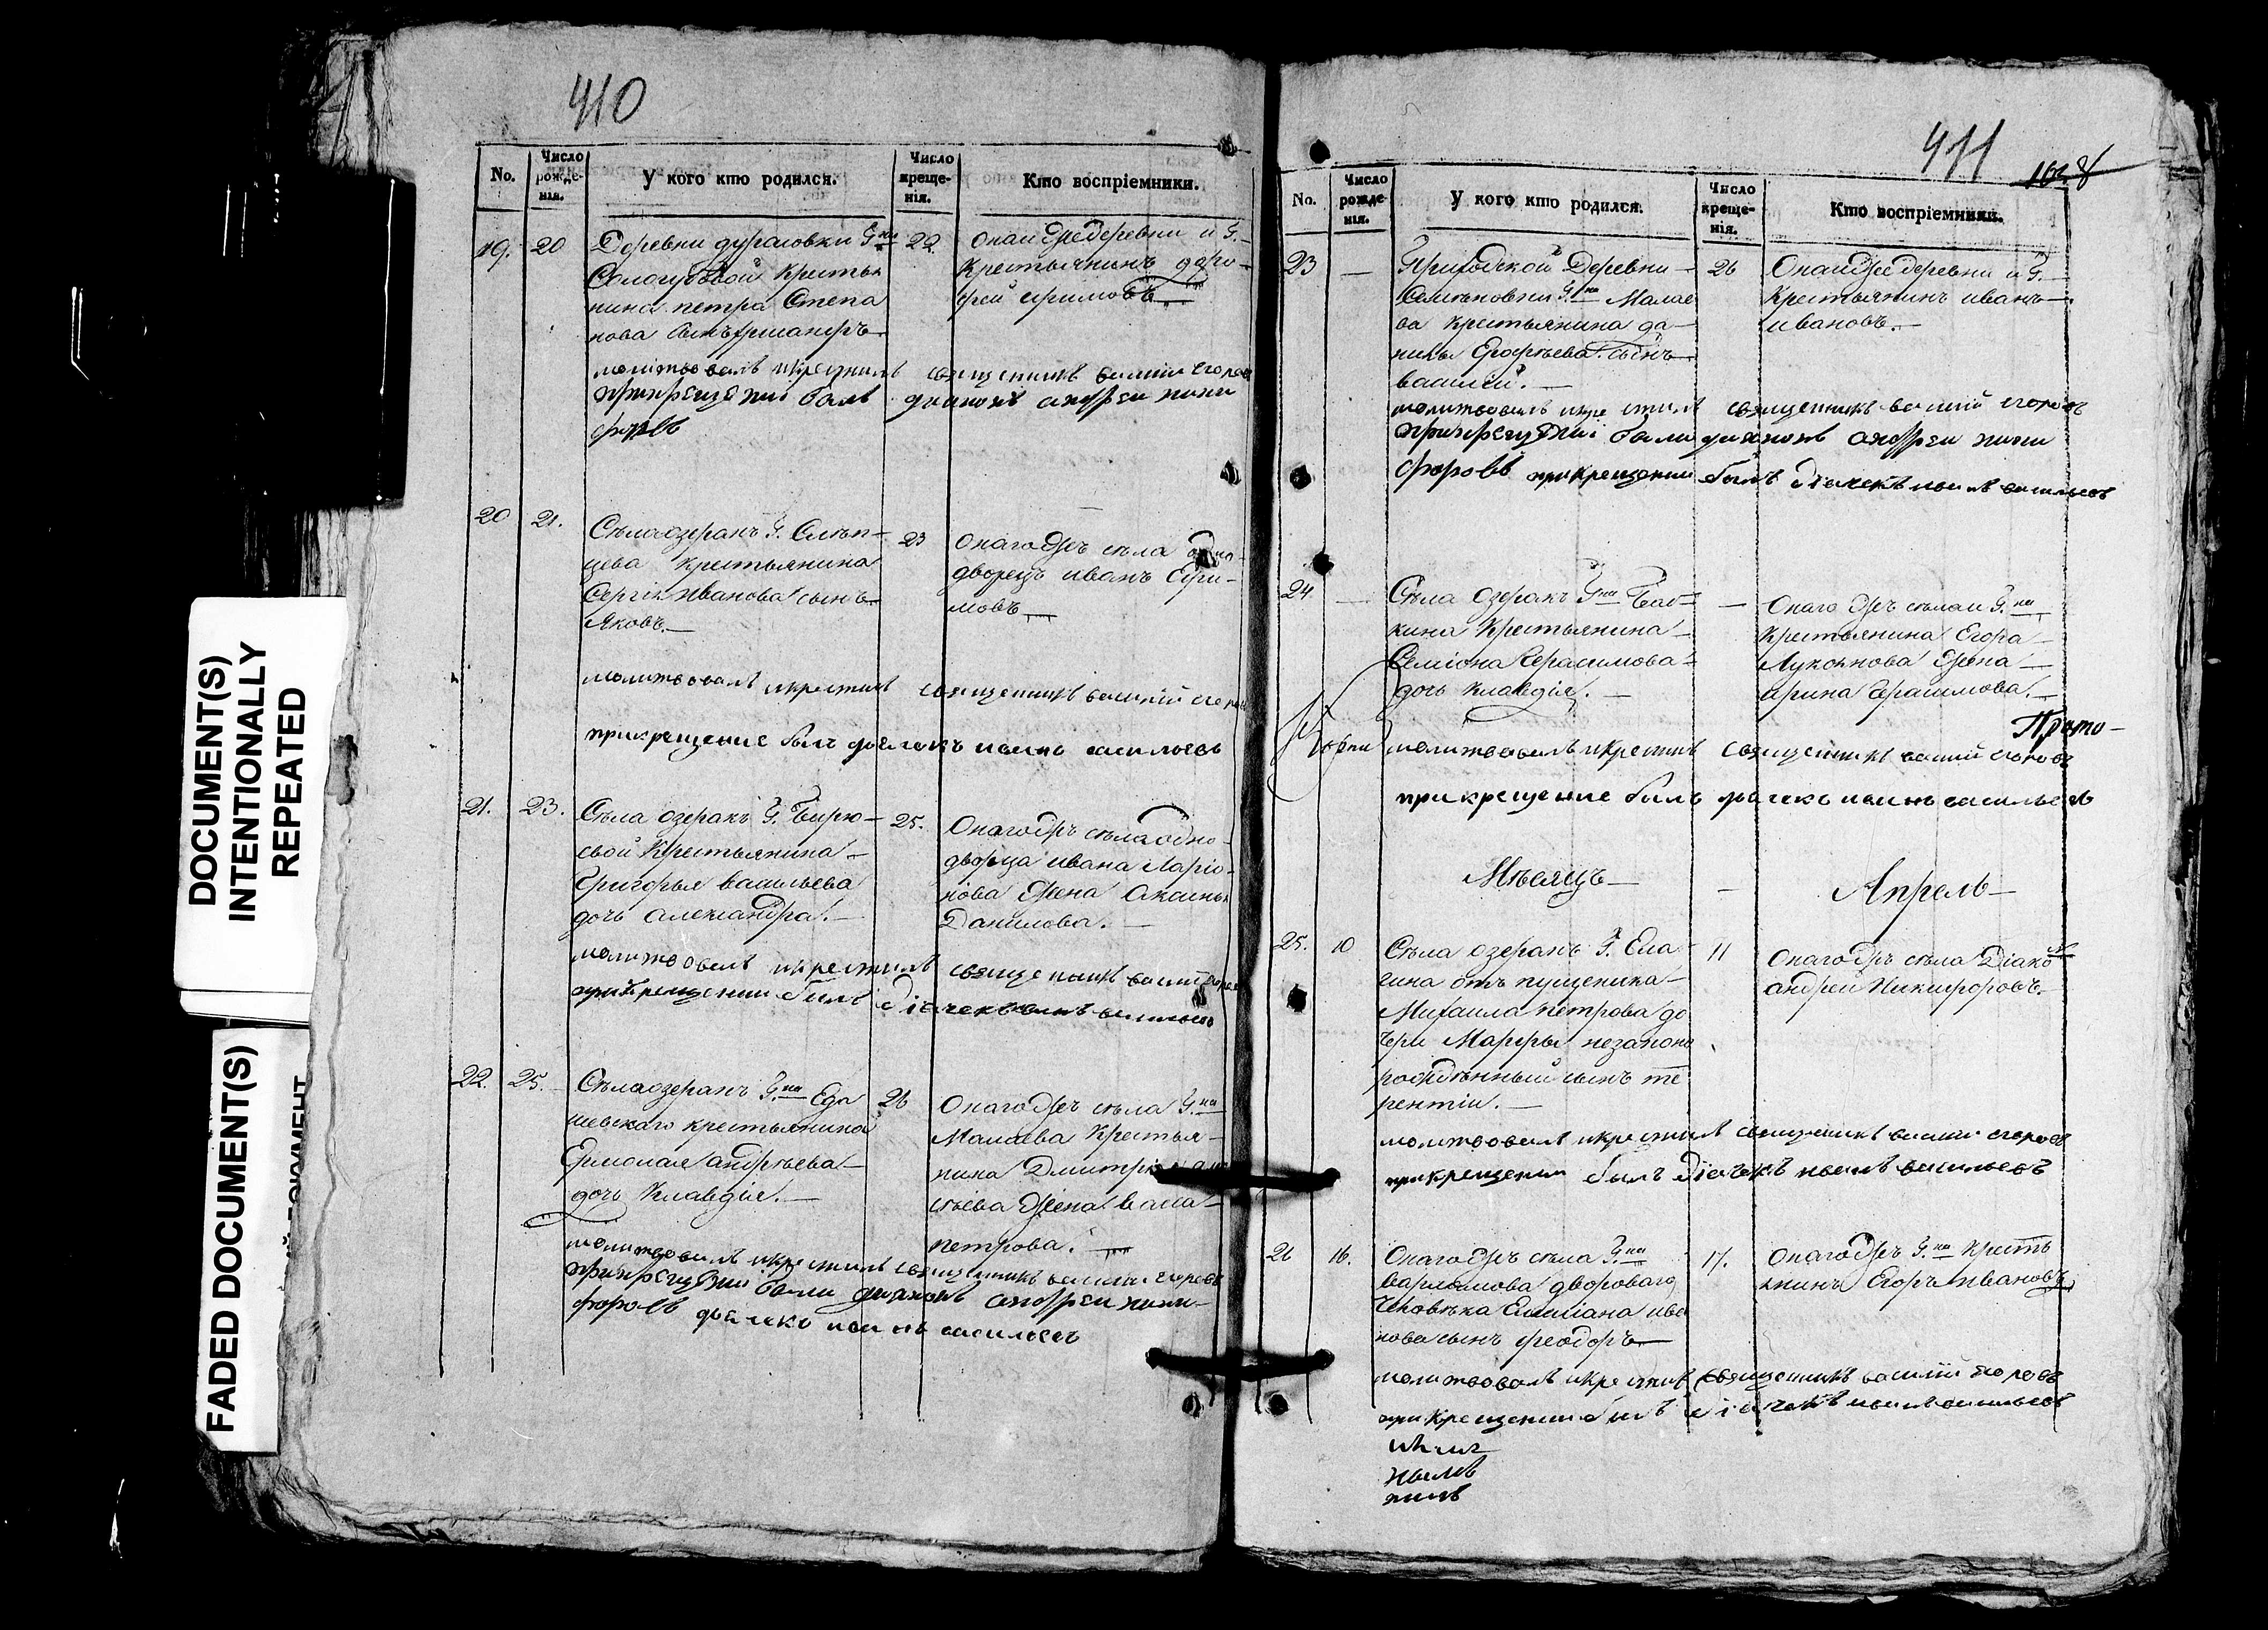 410
No.
Число рожде-нія.
У кого кто родился.
Число креще-нія.
Кто воспріемники.
19. 20
Деревни дурасовки Г.на
Сологубовой Крестья
нина петра Степа
нова сынъ
22. Онаиже деревни и Г.
Крестьянинъ доро
фей ефимовъ
молитвовалъ икрестилъ священникъ василій егоровъ
прикрещениі былъ диаконъ андреи ники
форовъ
20 21.
Съла озеракъ Г. Слѣп-
цева крестьянина
Сергія Иванова сынъ
Яковъ.
23 Онагожъ съла одно-
дворецъ иванъ Ефи-
мовъ
молитвовалъ икрестилъ священникъ василій егоровъ
прикрещение былъ дьячекъ васильевъ
21. 23.
Съла озеракъ Г. Бирю-
евой Крестьянина
Григорья васильева
дочь александра.
25. Онагожъ съла одно-
дворца ивана Ларіо-
нова жена Аксинья
Данилова.
молитвовалъ икрестилъ священникъ василій егоровъ
прикрещении былъ діячекъ васильевъ
22. 25.
Съла озеракъ Г.на Еда
шевскаго крестьянина
Ермолая андрѣева
дочь Клавдія.
26 Онагожъ съла Г.на
Малаева Крестья-
нина Дмитрія
жена васса
петрова.
молитвовалъ икрестилъ священникъ василій егоровъ
прикрещениі были диаконъ андреи ники-
форовъ дьячекъ васильевъ
411
No.
Число рожде-нія.
У кого кто родился.
Число креще-нія.
Кто воспріемники.
23 —
Приходской Деревни
Семѣновки Г.на Малае
ва крестьянина да-
нилы Ерофѣева сынъ
василей.
26 Онаиже деревни и Г.
Крестьянинъ иванъ
ивановъ.
молитвовалъ икрестилъ священникъ василій егоровъ
прикрещениі были диаконъ андреи ники
форовъ прикрещении былъ діячекъ васильевъ
24 —
Съла Озеракъ Г.на Баб-
кина Крестьянина
Семіона Герасимова
дочь клавдія.
— Онаго жъ съла и Г.на
Крестьянина Егора
Лукоянова жена
ирина Герасимова.
Прото-
молитвовалъ икрестилъ священникъ василій егоровъ
прикрещение былъ дьячекъ васильевъ
Мѣсяцъ — Апрель
25. 10
Съла озеракъ Г. Ела
гина отъ пущеника
Михаила петрова до
чери Марфы незаконо
рожденный сынъ те
рентіи.
11 Онагожъ съла Діако
андрей Никифоровъ.
молитвовалъ икрестилъ священникъ василій егоровъ
прикрещении былъ діячекъ васильевъ
26 16.
Онагожъ съла Г.на
варламова двороваго
Человѣка Емилiана ива
нова сынъ феодоръ
17. Онагожъ Г.на Кресть
янинъ Егоръ Ивановъ
молитвовалъ икрестилъ священникъ василій егоровъ
прикрещении былъ діячекъ васильевъ
DOCUMENT(S)
INTENTIONALLY
REPEATED
FADED DOCUMENT(S)